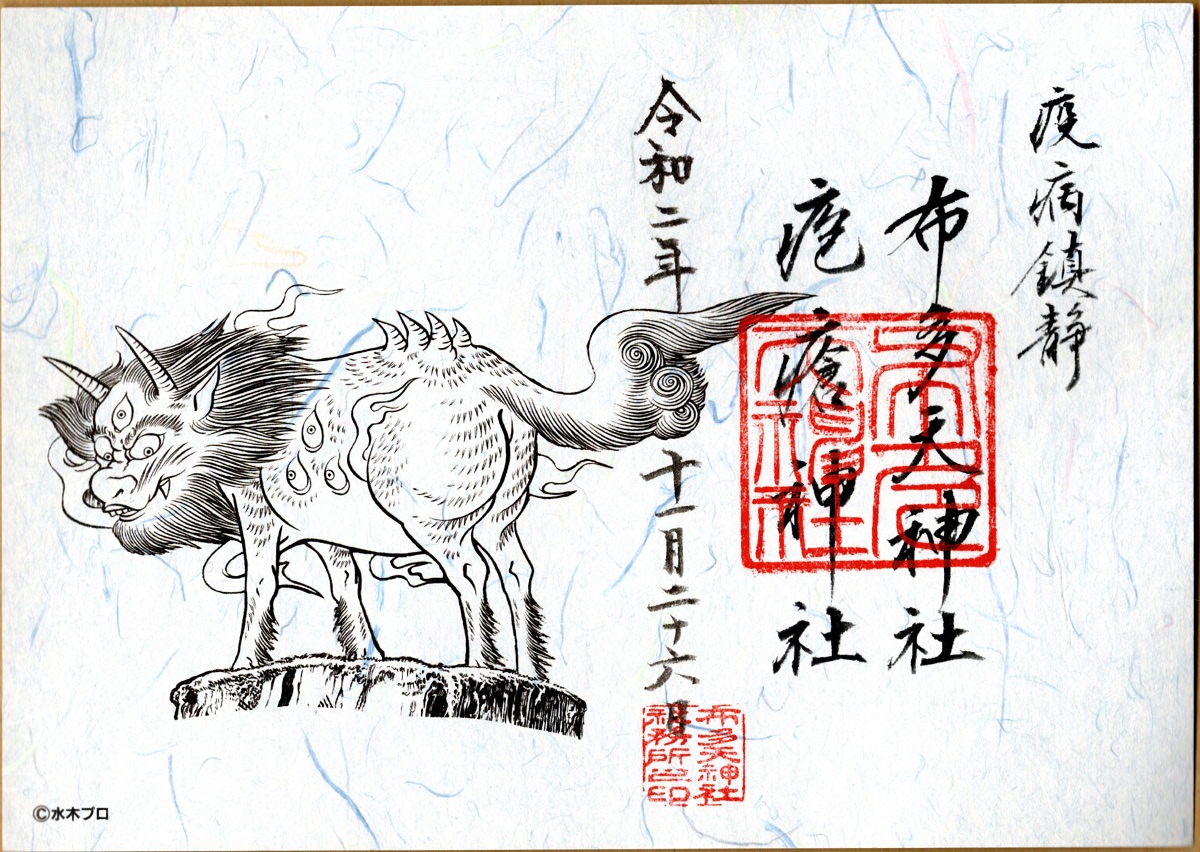 疫病鎮静
布多天神社
疱瘡神社
令和二年十一月二十六日
布多天神社
社務所之印
©水木プロ